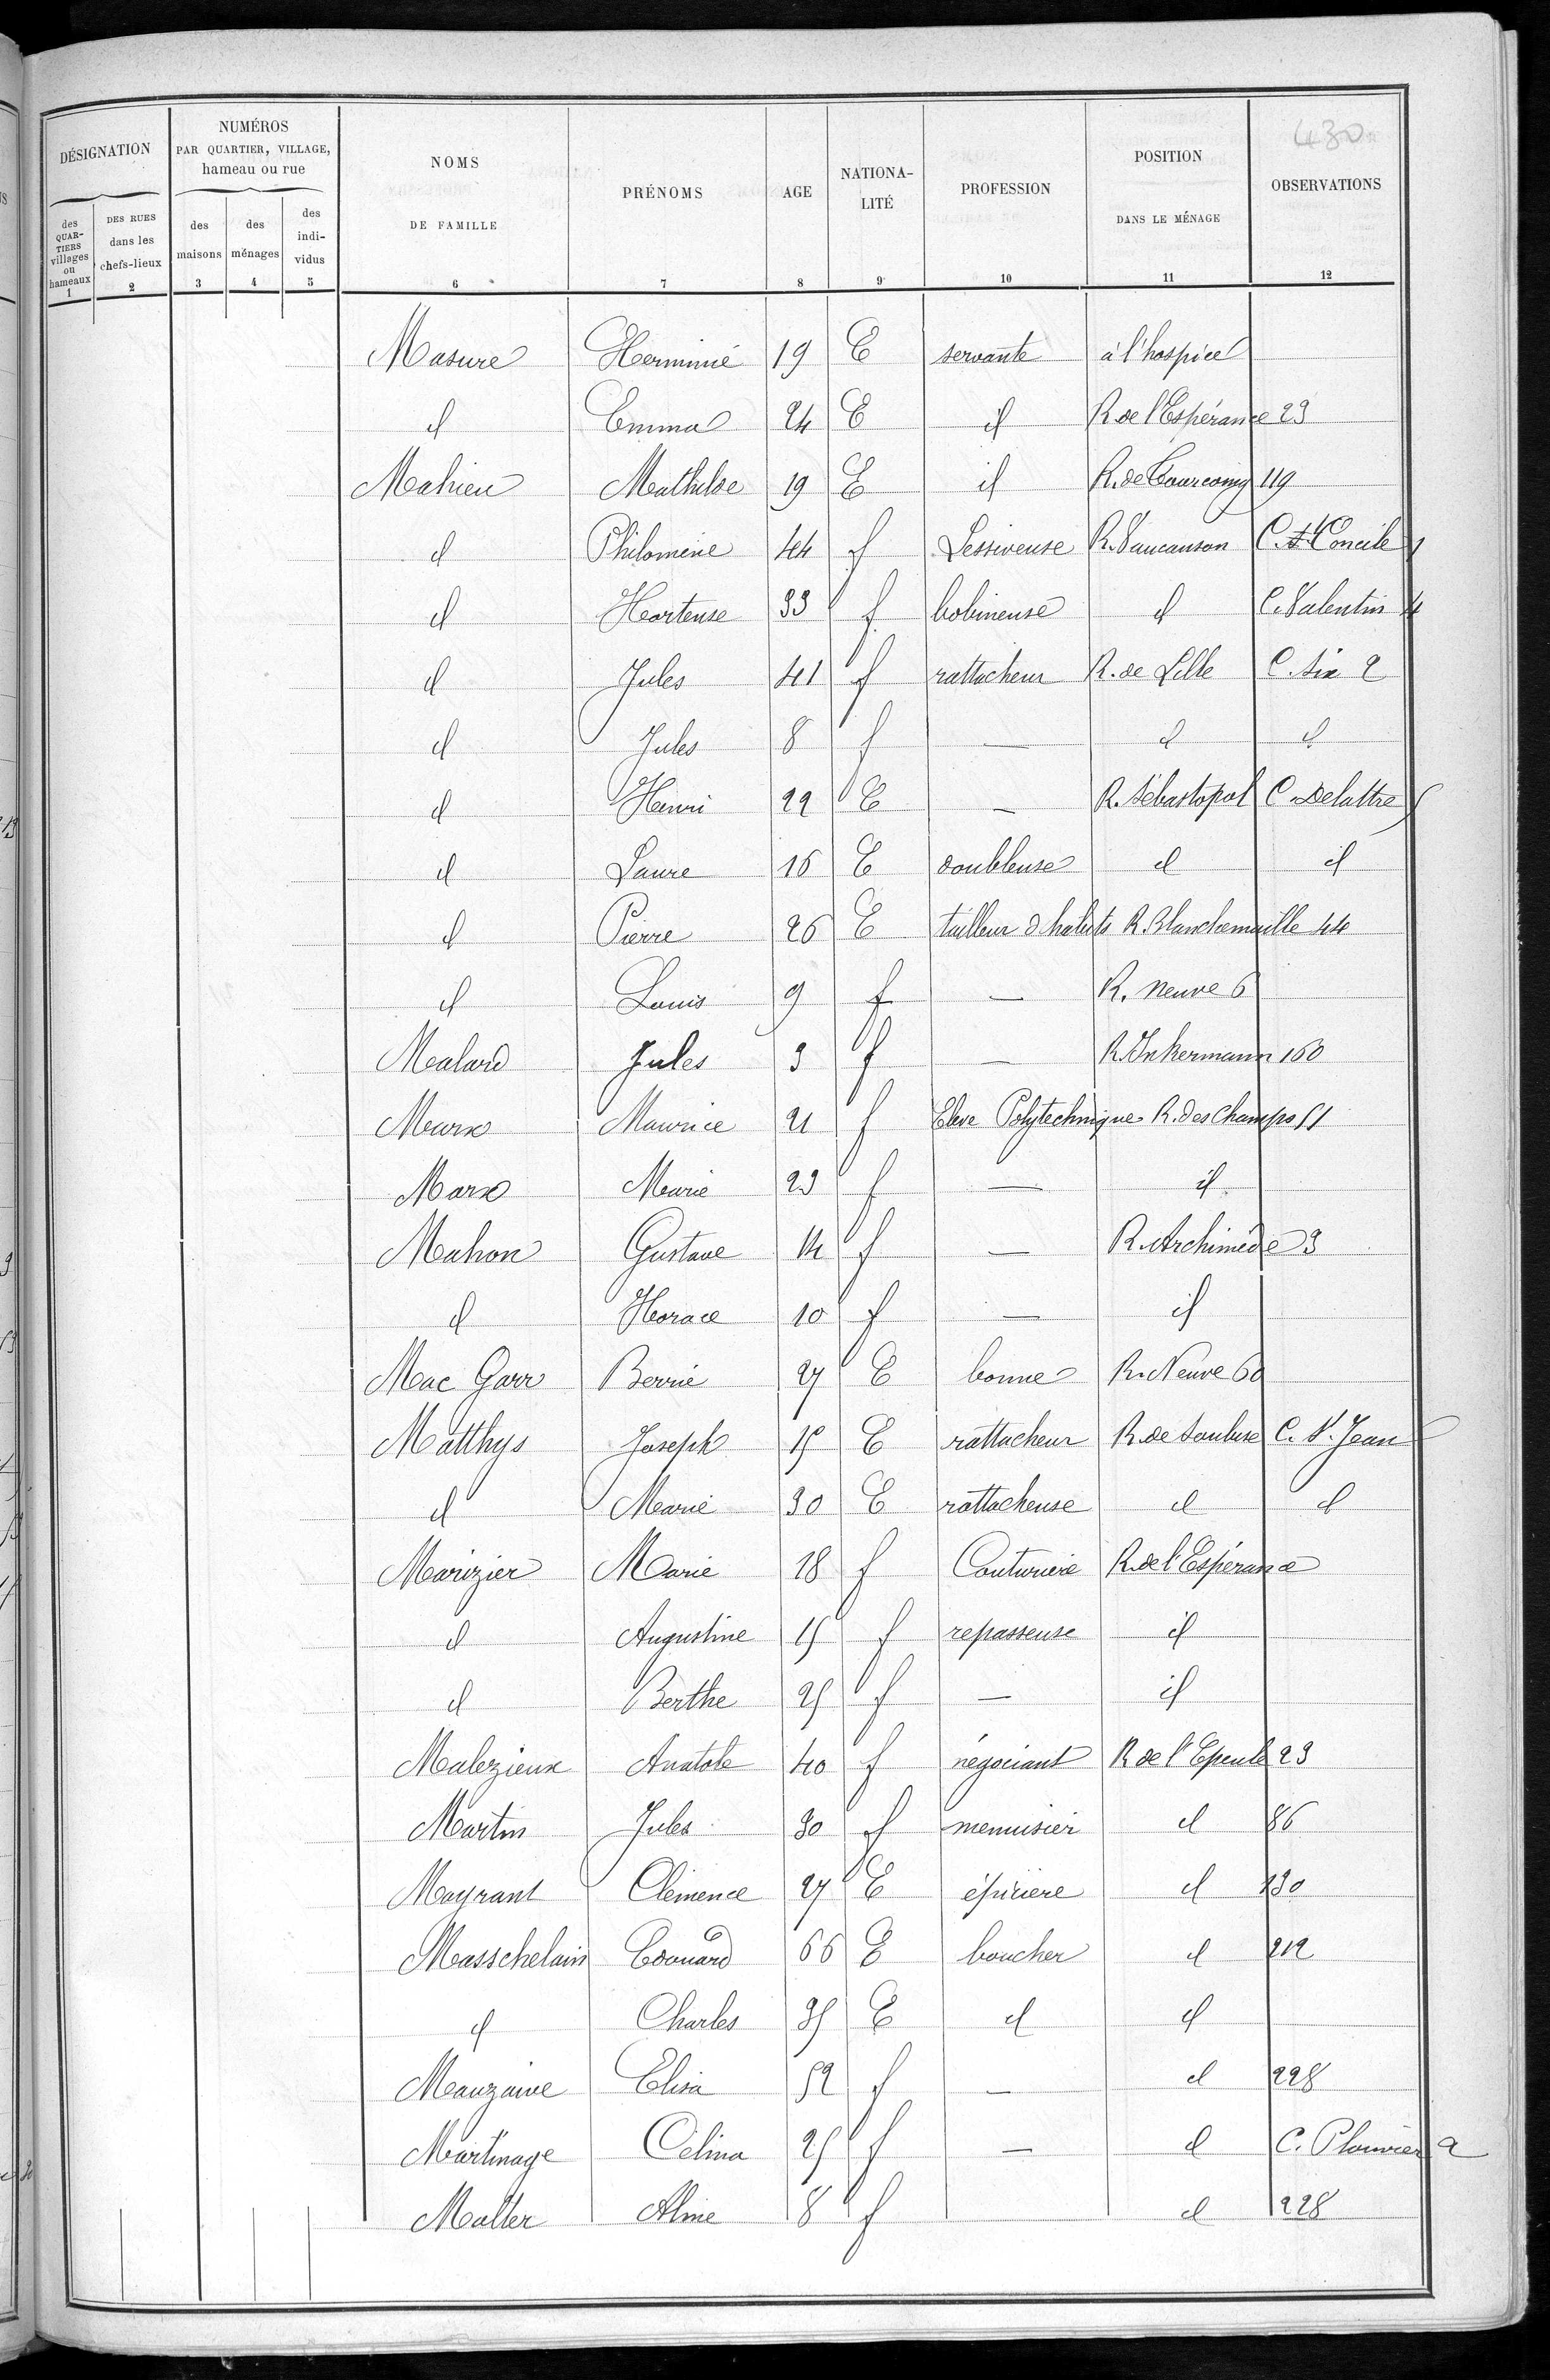 430
DÉSIGNATION
des QUARTIERS villages ou hameaux
1
DES RUES dans les chefs-lieux
2
NUMÉROS
PAR QUARTIER, VILLAGE,
hameau ou rue
des maisons
3
des ménages
4
des indi-vidus
5
NOMS DE FAMILLE
6
PRÉNOMS
7
AGE
8
NATIONA-LITÉ
9
PROFESSION
10
POSITION DANS LE MÉNAGE
11
OBSERVATIONS
12
Masure Herminie 19 E servante à l'hospice
id Emma 24 E id R. de l'Espérance 23
Mahieu Mathilde 19 E id R. de Tourcoing 119
id Philomène 44 f Lessiveuse R. Vaucanson C. St
id Hortense 33 f bobineuse id C. Valentin 4
id Jules 41 f rattacheur R. de Lille C. Six 2
id Jules 8 f — id id
id Henri 22 E — R. Sébastopol C. Delattre 5
id Laure 16 E doubleuse id id
id Pierre 26 E tailleur d'habits R. Blanchemaille 44
id Louis 9 f — R. Neuve 6
Malard Jules 3 f — R. Inkermann 160
Marx Maurice 21 f Elève Polytechnique R. des Champs 51
Marx Marie 23 f — id
Mahon Gustave 14 f — R. Archimède 3
id Horace 10 f — id
Mac Garr Berrie 27 E bonne R. Neuve 60
Matthys Joseph 15 E rattacheur R. de C. St. Jean
id Marie 30 E rattacheuse id id
Marizier Marie 18 f Couturière R. de l'Espérance
id Augustine 15 f repasseuse id
id Berthe 25 f — id
Malezieux Anatole 40 f négociant R. de l'Epeule 23
Martin Jules 30 f menuisier id 86
Mayrant Clémence 27 E épicière id 130
Masschelain Edouard 66 E boucher id 212
id Charles 35 E id id
Elisa 52 f — id 228
Martinage Célina 25 f — id C. Plouvier 2
Malter Aline 8 f id 228